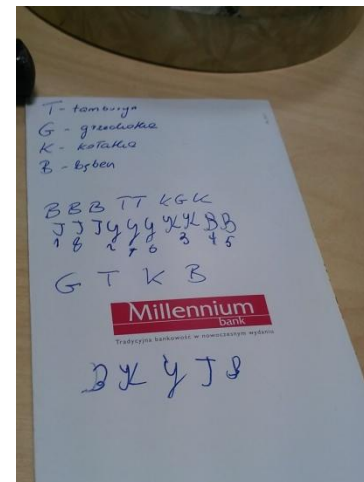 T - tamburyn
G - grzechotka
K - kołatka
B - bęben
B B B TT K G K
J J J y y y K K B B
1 8 2 7 6 3 4 5
G T K B
Millennium
bank
Tradycyjna bankowość w nowoczesnym wydaniu
B K y J 8